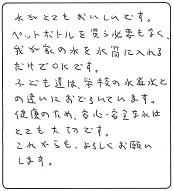 水がとてもおいしいです。
ペットボトルを買う必要もなく、
我が家の水を水筒に入れる
だけでOKです。
子ども達は、学校の水道水と
の違いにおどろいています。
健康のため、安心・安全な水は
とても大切です。
これからも、よろしくお願い
します。